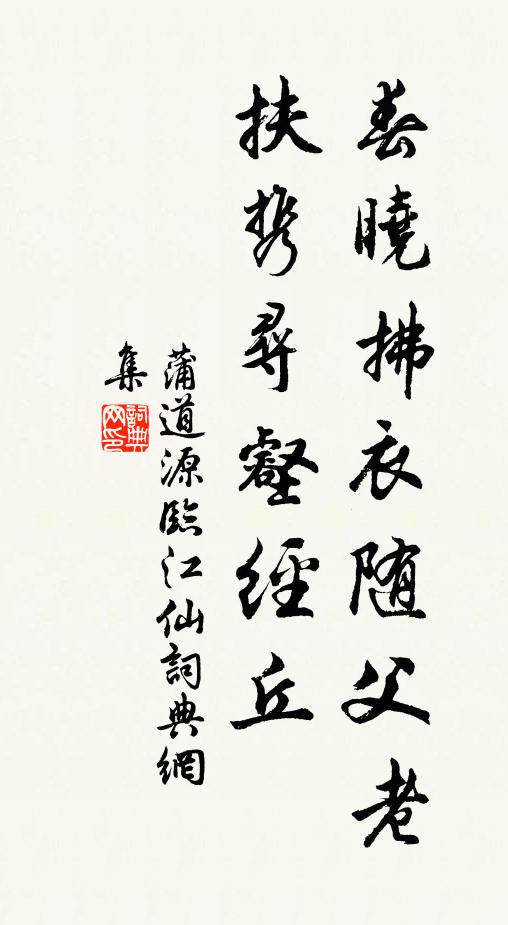 春曉拂衣随父老
扶携尋壑經丘
蒲道源臨江仙詞典網
集
詞典网印